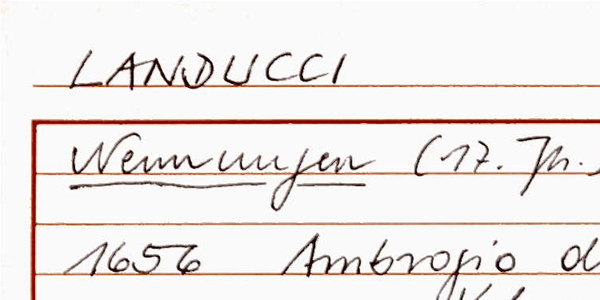 LANDUCCI
Nennungen (17. Jh.)
1656 Ambrogio